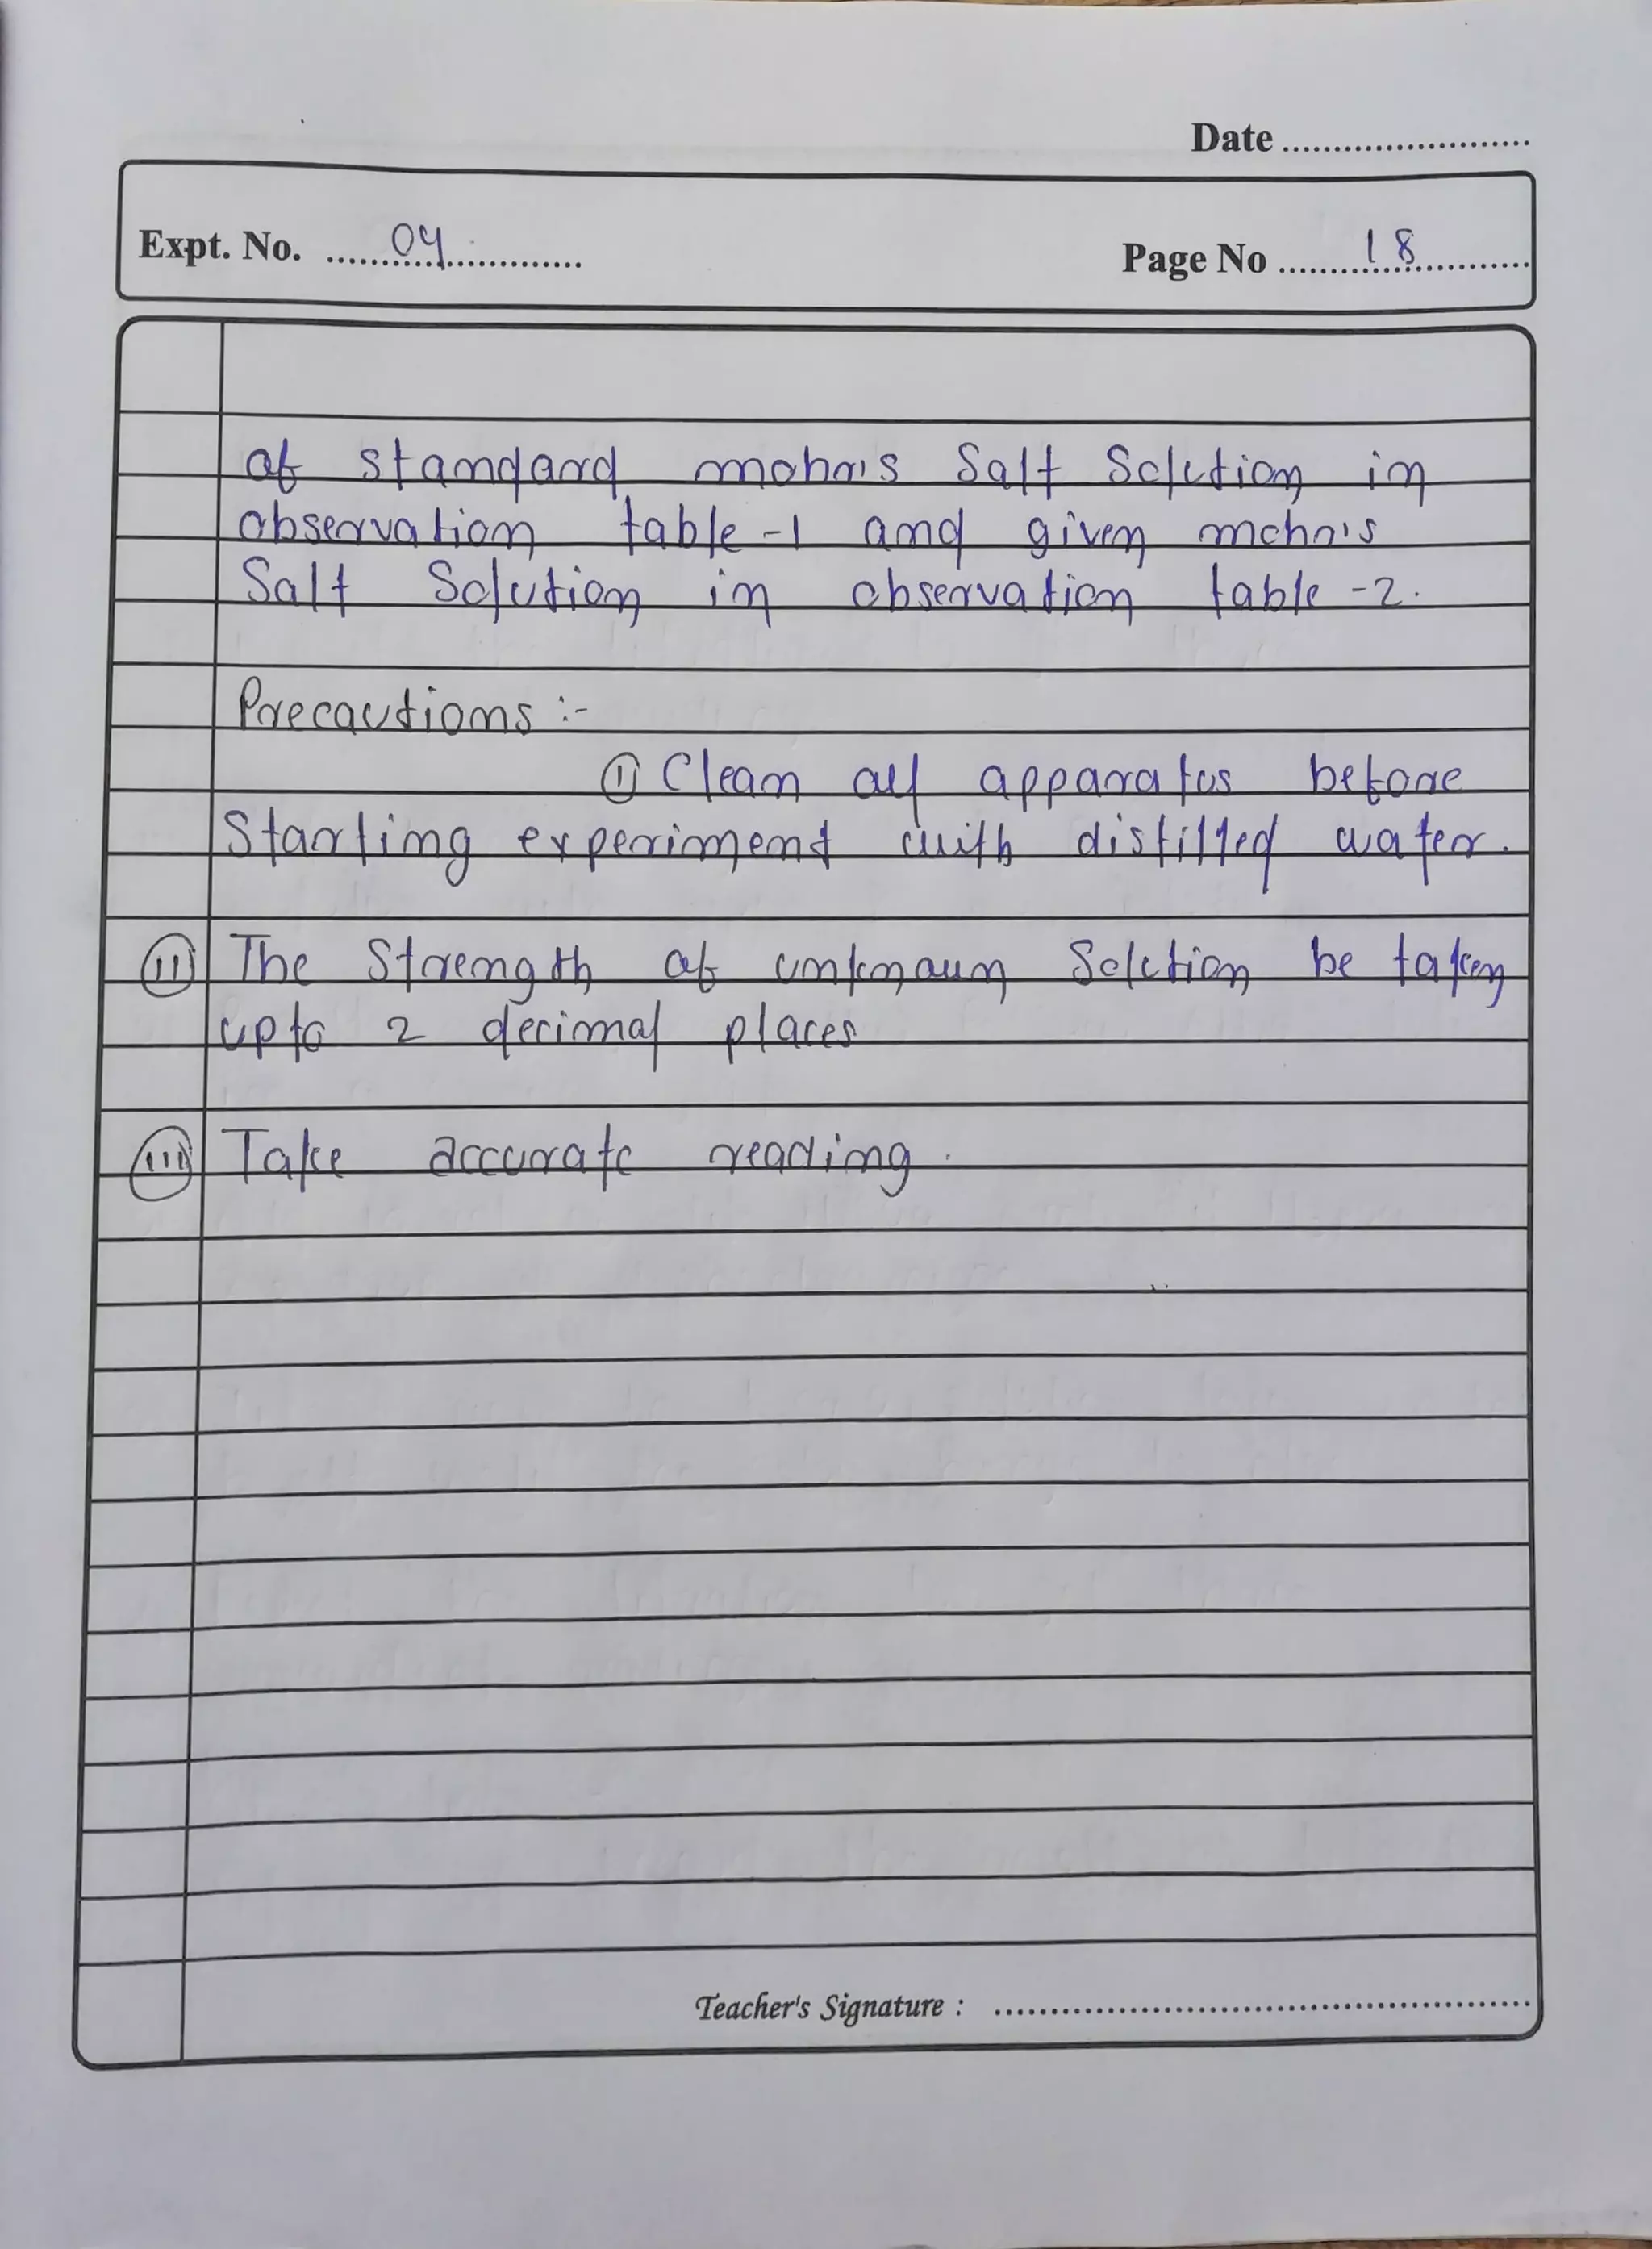 Date ........................
Expt. No. ......04......
Page No ......18......
of standard mohr's Salt Solution in
observation table-1 and given mohr's
Salt Solution in observation table-2.
Precautions :-
(i) Clean all apparatus before
Starting experiment with distilled water.
(ii) The Strength of unknown Solution be taken
upto 2 decimal places
(iii) Take accurate reading.
Teacher's Signature : ........................